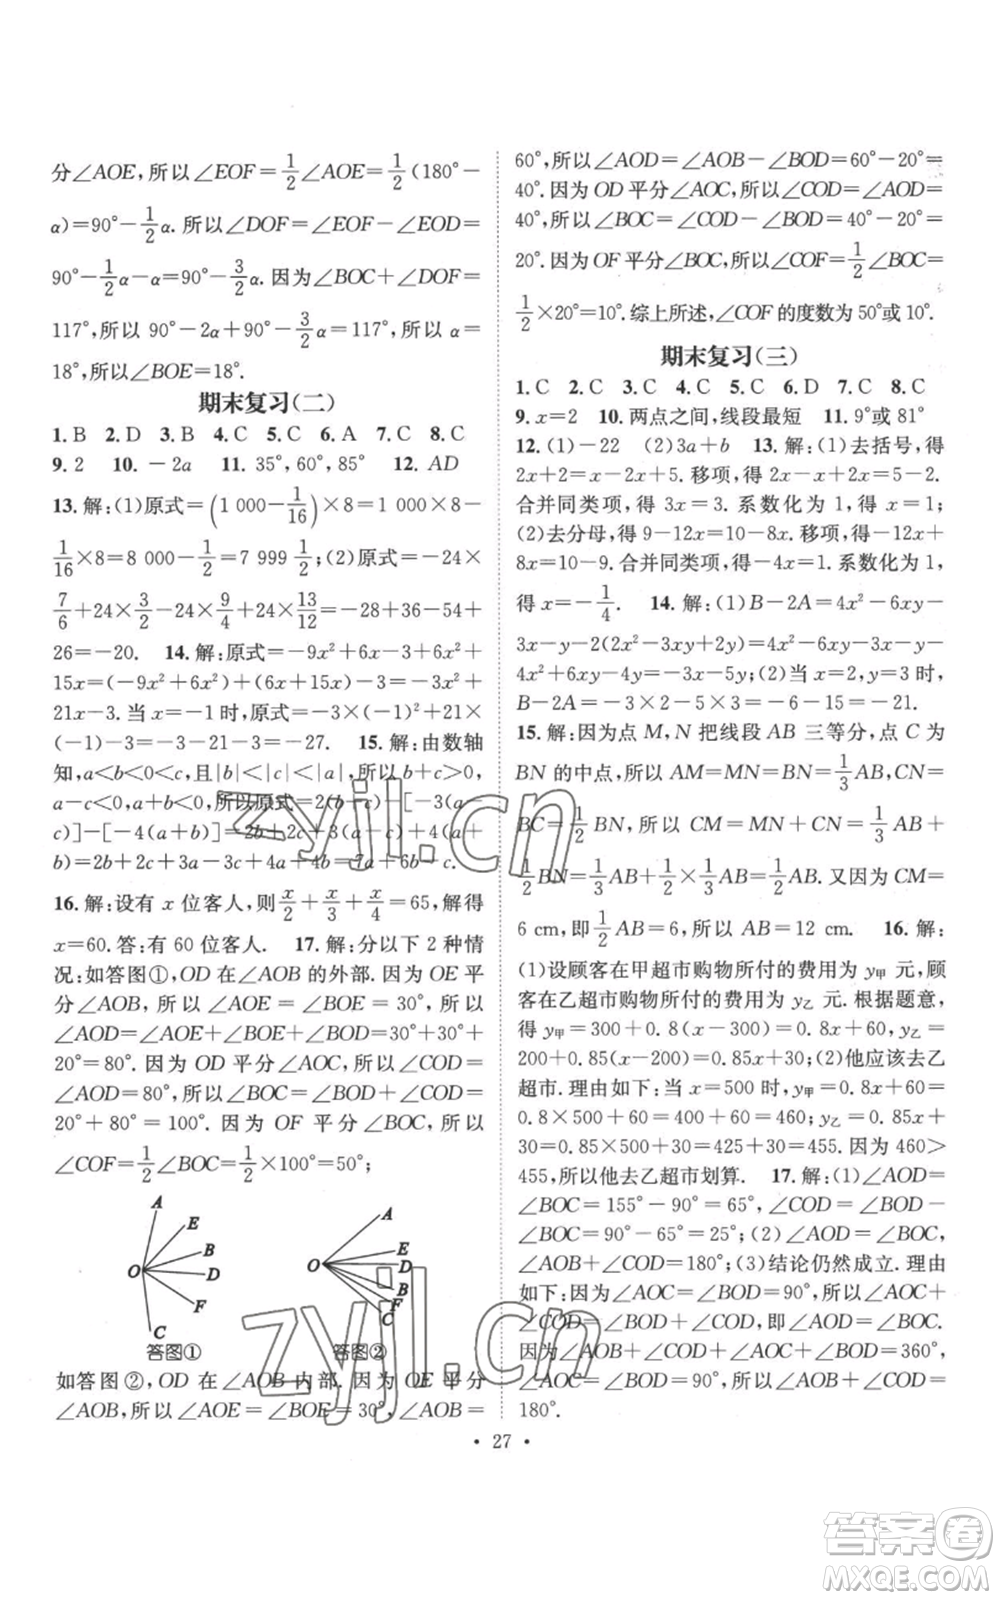 分∠AOE,所以∠EOF=1/2∠AOE=1/2(180°-
α)=90°-1/2α.所以∠DOF=∠EOF-∠EOD=
90°-1/2α-α=90°-3/2α.因为∠BOC+∠DOF=
117°,所以 90°-2α+90°-3/2α=117°,所以 α=
18°,所以∠BOE=18°.
期末复习(二)
1.B 2.D 3.B 4.C 5.C 6.A 7.C 8.C
9.2 10.-2a 11.35°,60°,85° 12.AD
13.解:(1)原式=(1 000-1/16)×8=1 000×8-
1/16×8=8 000-1/2=7 999 1/2;(2)原式=-24×
7/6+24×3/2-24×9/4+24×13/12=-28+36-54+
26=-20. 14.解:原式=-9x²+6x-3+6x²+
15x=(-9x²+6x²)+(6x+15x)-3=-3x²+
21x-3.当 x=-1 时,原式=-3×(-1)²+21×
(-1)-3=-3-21-3=-27. 15.解:由数轴
知,a<b<0<c,且|b|<|c|<|a|,所以 b+c>0,
a-c<0,a+b<0,所以原式=2(b+c)-[-3(a-
c)]-[-4(a+b)]=2b+2c+3(a-c)+4(a+
b)=2b+2c+3a-3c+4a+4b=7a+6b-c.
16.解:设有 x 位客人,则x/2+x/3+x/4=65,解得
x=60.答:有 60 位客人. 17.解:分以下 2 种情
况:如答图①,OD 在∠AOB 的外部.因为 OE 平
分∠AOB,所以∠AOE=∠BOE=30°,所以
∠AOD=∠AOE+∠BOE+∠BOD=30°+30°+
20°=80°.因为 OD 平分∠AOC,所以∠COD=
∠AOD=80°,所以∠BOC=∠BOD+∠COD=
20°+80°=100°.因为 OF 平分∠BOC,所以
∠COF=1/2∠BOC=1/2×100°=50°;
A
E
B
O
D
F
C
答图①
A
E
O
D
B
F
C
答图②
如答图②,OD 在∠AOB 内部.因为 OE 平分
∠AOB,所以∠AOE=∠BOE=30°,∠AOB=
60°,所以∠AOD=∠AOB-∠BOD=60°-20°=
40°.因为 OD 平分∠AOC,所以∠COD=∠AOD=
40°,所以∠BOC=∠COD-∠BOD=40°-20°=
20°.因为 OF 平分∠BOC,所以∠COF=1/2∠BOC=
1/2×20°=10°.综上所述,∠COF 的度数为 50°或 10°.
期末复习(三)
1.C 2.C 3.C 4.C 5.C 6.D 7.C 8.C
9.x=2 10.两点之间,线段最短 11.9°或 81°
12.(1)-22 (2)3a+b 13.解:(1)去括号,得
2x+2=-x-2x+5.移项,得 2x-x+2x=5-2.
合并同类项,得 3x=3.系数化为 1,得 x=1;
(2)去分母,得 9-12x=10-8x.移项,得-12x+
8x=10-9.合并同类项,得-4x=1.系数化为 1,
得 x=-1/4. 14.解:(1)B-2A=4x²-6xy-
3x-y-2(2x²-3xy+2y)=4x²-6xy-3x-y-
4x²+6xy-4y=-3x-5y;(2)当 x=2,y=3 时,
B-2A=-3×2-5×3=-6-15=-21.
15.解:因为点 M,N 把线段 AB 三等分,点 C 为
BN 的中点,所以 AM=MN=BN=1/3AB,CN=
BC=1/2BN,所以 CM=MN+CN=1/3AB+
1/2BN=1/3AB+1/2×1/3AB=1/2AB.又因为 CM=
6 cm,即1/2AB=6,所以 AB=12 cm. 16.解:
(1)设顾客在甲超市购物所付的费用为 y甲 元,顾
客在乙超市购物所付的费用为 y乙 元.根据题意,
得 y甲=300+0.8(x-300)=0.8x+60,y乙=
200+0.85(x-200)=0.85x+30;(2)他应该去乙
超市.理由如下:当 x=500 时,y甲=0.8x+60=
0.8×500+60=400+60=460;y乙=0.85x+
30=0.85×500+30=425+30=455.因为 460>
455,所以他去乙超市划算. 17.解:(1)∠AOD=
∠BOC=155°-90°=65°,∠COD=∠BOD-
∠BOC=90°-65°=25°;(2)∠AOD=∠BOC,
∠AOB+∠COD=180°;(3)结论仍然成立.理由
如下:因为∠AOC=∠BOD=90°,所以∠AOC+
∠COD=∠BOD+∠COD,即∠AOD=∠BOC.
因为∠AOB+∠COD+∠AOC+∠BOD=360°,
∠AOC=∠BOD=90°,所以∠AOB+∠COD=
180°.
• 27 •
zyjl.cn
zyjl.cn
答案卷
MXQE.COM